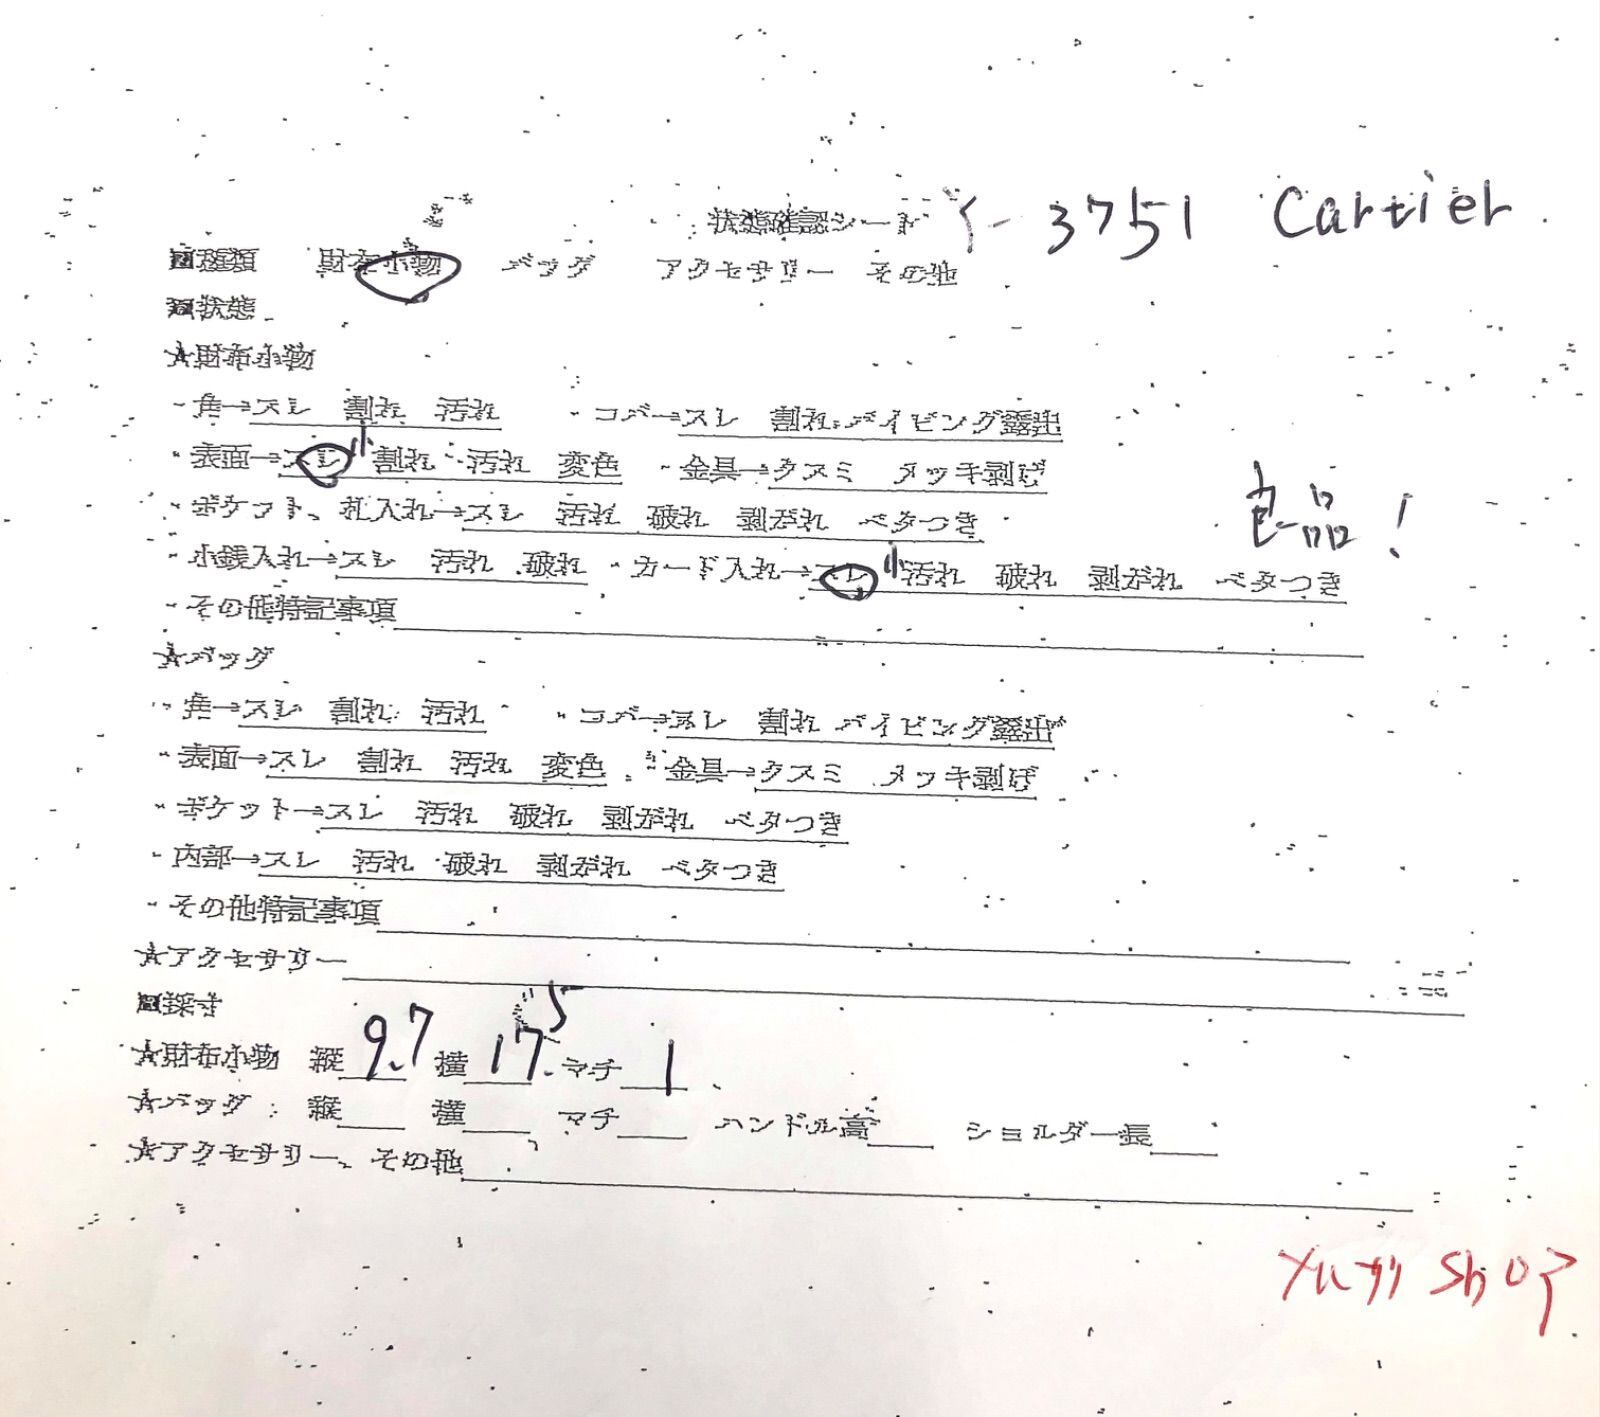 状態確認シート Y-3751 Cartier
■種類 財布小物 バッグ アクセサリー その他
■状態
★財布小物
・角→スレ 割れ 汚れ ・コバ→スレ 割れ パイピング露出
・表面→スレ 小 割れ 汚れ 変色 ・金具→クスミ メッキ剥げ
良品!
・ポケット、札入れ→スレ 汚れ 破れ 剥がれ ベタつき
・小銭入れ→スレ 汚れ 破れ ・カード入れ→スレ 小 汚れ 破れ 剥がれ ベタつき
・その他特記事項
★バッグ
・角→スレ 割れ 汚れ ・コバ→スレ 割れ パイピング露出
・表面→スレ 割れ 汚れ 変色 ・金具→クスミ メッキ剥げ
・ポケット→スレ 汚れ 破れ 剥がれ ベタつき
・内部→スレ 汚れ 破れ 剥がれ ベタつき
・その他特記事項
★アクセサリー
■採寸
★財布小物 縦 9.7 横 17.5 マチ 1
★バッグ 縦 横 マチ ハンドル高 ショルダー長
★アクセサリー、その他
shop